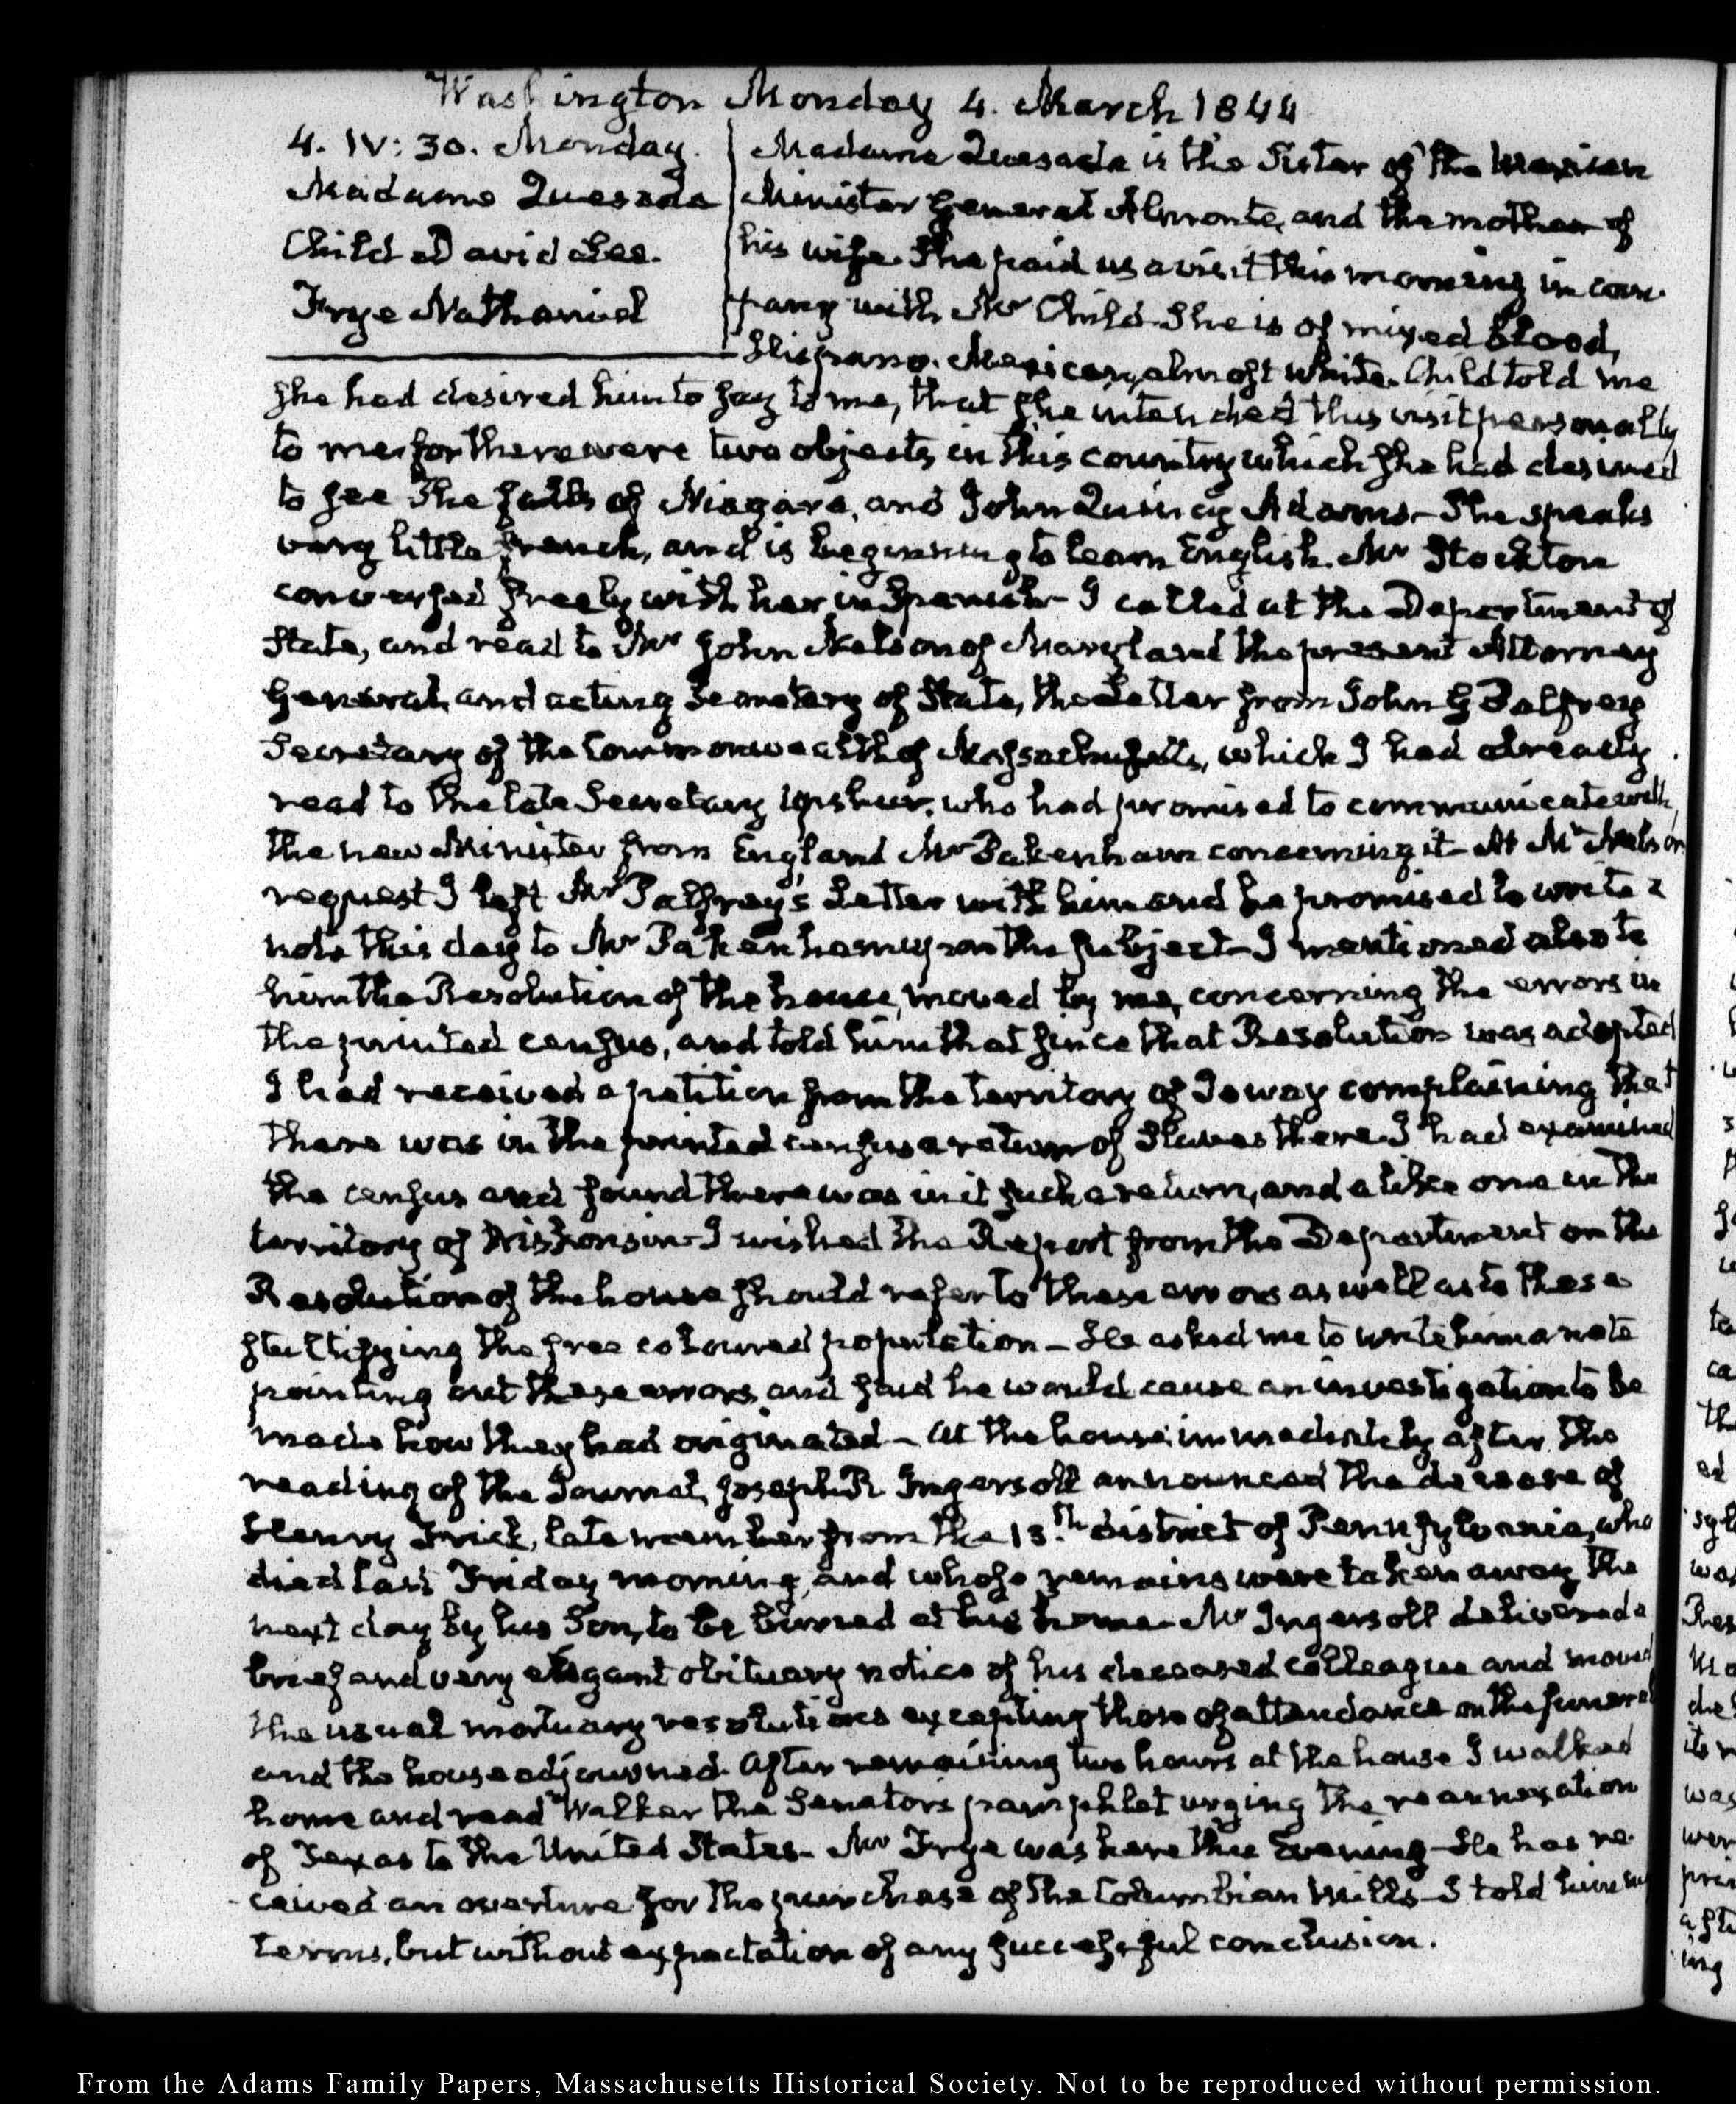 Washington Monday 4. March 1844
4. IV: 30. Monday.
Madame Quesada
Child David Lee.
Frye Nathaniel
Madame Quesada is the Sister of the Mexican
Minister General Almonte, and the mother of
his wife. She paid us a visit this morning in com-
pany with Mr Child. She is of mixed blood,
Hispano. Mexican, almost white. Child told me
she had desired him to say to me, that she intended this visit personally
to me; for there were two objects in this country which she had desired
to see The falls of Niagara, and John Quincy Adams— She speaks
very little French, and is beginning to learn English. Mr Stockton
conversed freely with her in Spanish— I called at the Department of
State, and read to Mr John Nelson of Maryland the present Attorney
General, and acting Secretary of State, the Letter from John G Palfrey
Secretary of the Commonwealth of Massachusetts, which I had already
read to the late Secretary Upshur, who had promised to communicate with
the new Minister from England Mr Pakenham concerning it— At Mr Nelson
request I left Mr Palfrey's Letter with him and he promised to write a
note this day to Mr Pakenham upon the subject— I mentioned also to
him the Resolution of the house, moved by me, concerning the errors in
the printed census, and told him that since that Resolution was adopted
I had received a petition from the territory of Ioway complaining that
there was in the printed census a return of Slaves there. I had examined
the census and found there was in it such a return, and a like one in the
territory of Wiskonsin— I wished the Report from the Department on the
Resolution of the house should refer to these errors as well as to these
stultifying the free coloured population— He asked me to write him a note
pointing out these errors, and said he would cause an investigation to be
made how they had originated— At the house immediately after the
reading of the Journal, Joseph R Ingersoll announced the decease of
Henry Frick, late member from the 13.th district of Pennsylvania, who
died last Friday morning, and whose remains were taken away the
next day by his Son, to be buried at his home— Mr Ingersoll delivered a
brief and very elegant obituary notice of his deceased colleague and moved
the usual mortuary resolutions excepting those of attendance on the funeral
and the house adjourned. After remaining two hours at the house I walked
home and read Walker the Senators pamphlet urging the reannexation
of Texas to the United States— Mr Frye was here this Evening— He has re-
ceived an overture for the purchase of the Columbian Mills— I told him my
terms, but without expectation of any successful conclusion.
From the Adams Family Papers, Massachusetts Historical Society. Not to be reproduced without permission.